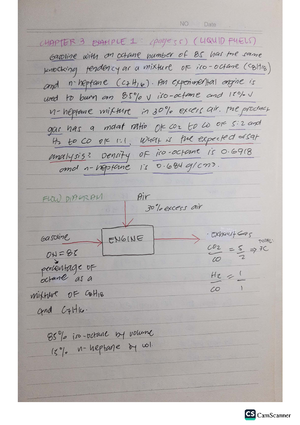 NO. Date
CHAPTER 3 EXAMPLE 2 (LIQUID FUELS)
Gasoline with an octane number of 85 has the same
knocking tendency as a mixture of iso-octane (C8H18)
and n-heptane (C7H16). An experimental engine is
used to burn an 85% v iso-octane and 15% v
n-heptane mixture in 30% excess air. The product
gas has a molal ratio of CO2 to CO of 5:2 and
H2 to CO of 1:1. What is the expected orsat
analysis? Density of iso-octane is 0.6918
and n-heptane is 0.684 g/cm3.
FLOW DIAGRAM
Air
30% excess air
gasoline
ENGINE
Exhaust Gas
ON = 85
percentage of
octane as a
mixture of C8H18
and C7H16
CO2 / CO = 5 / 2
H2 / CO = 1 / 1
85% iso-octane by volume
15% n-heptane by vol
CS CamScanner